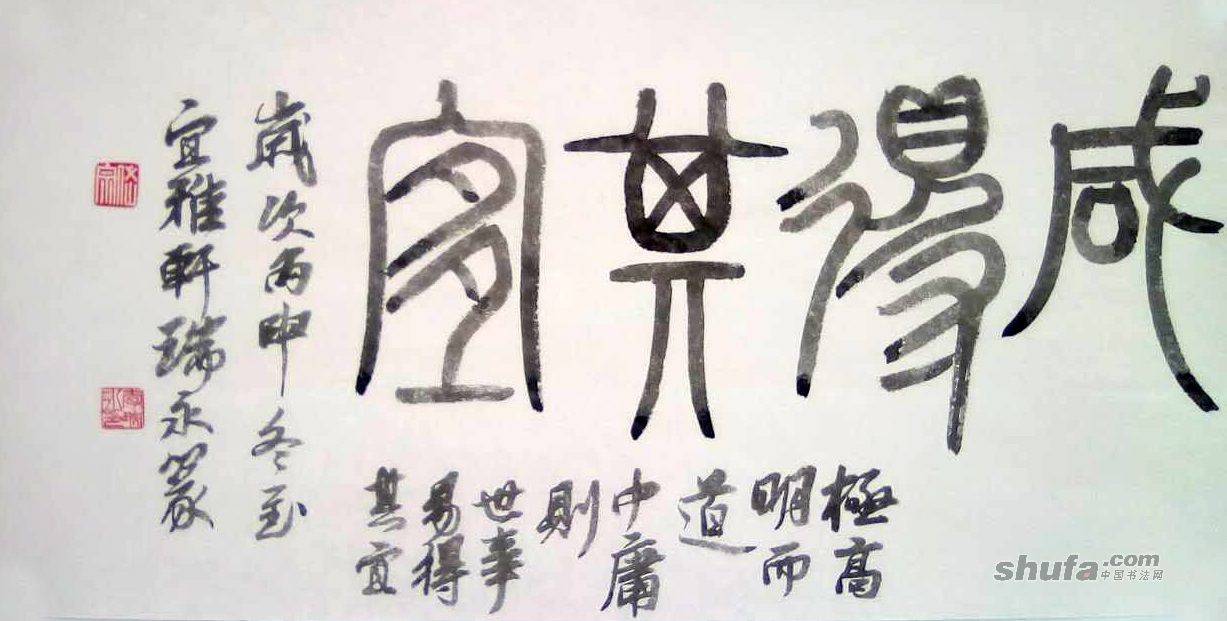 咸得其宜
極高
明而
道
中庸
則
世事
易得
其宜
歲次丙申冬至
宜雅軒瑞永篆
shufa.com
中国书法网